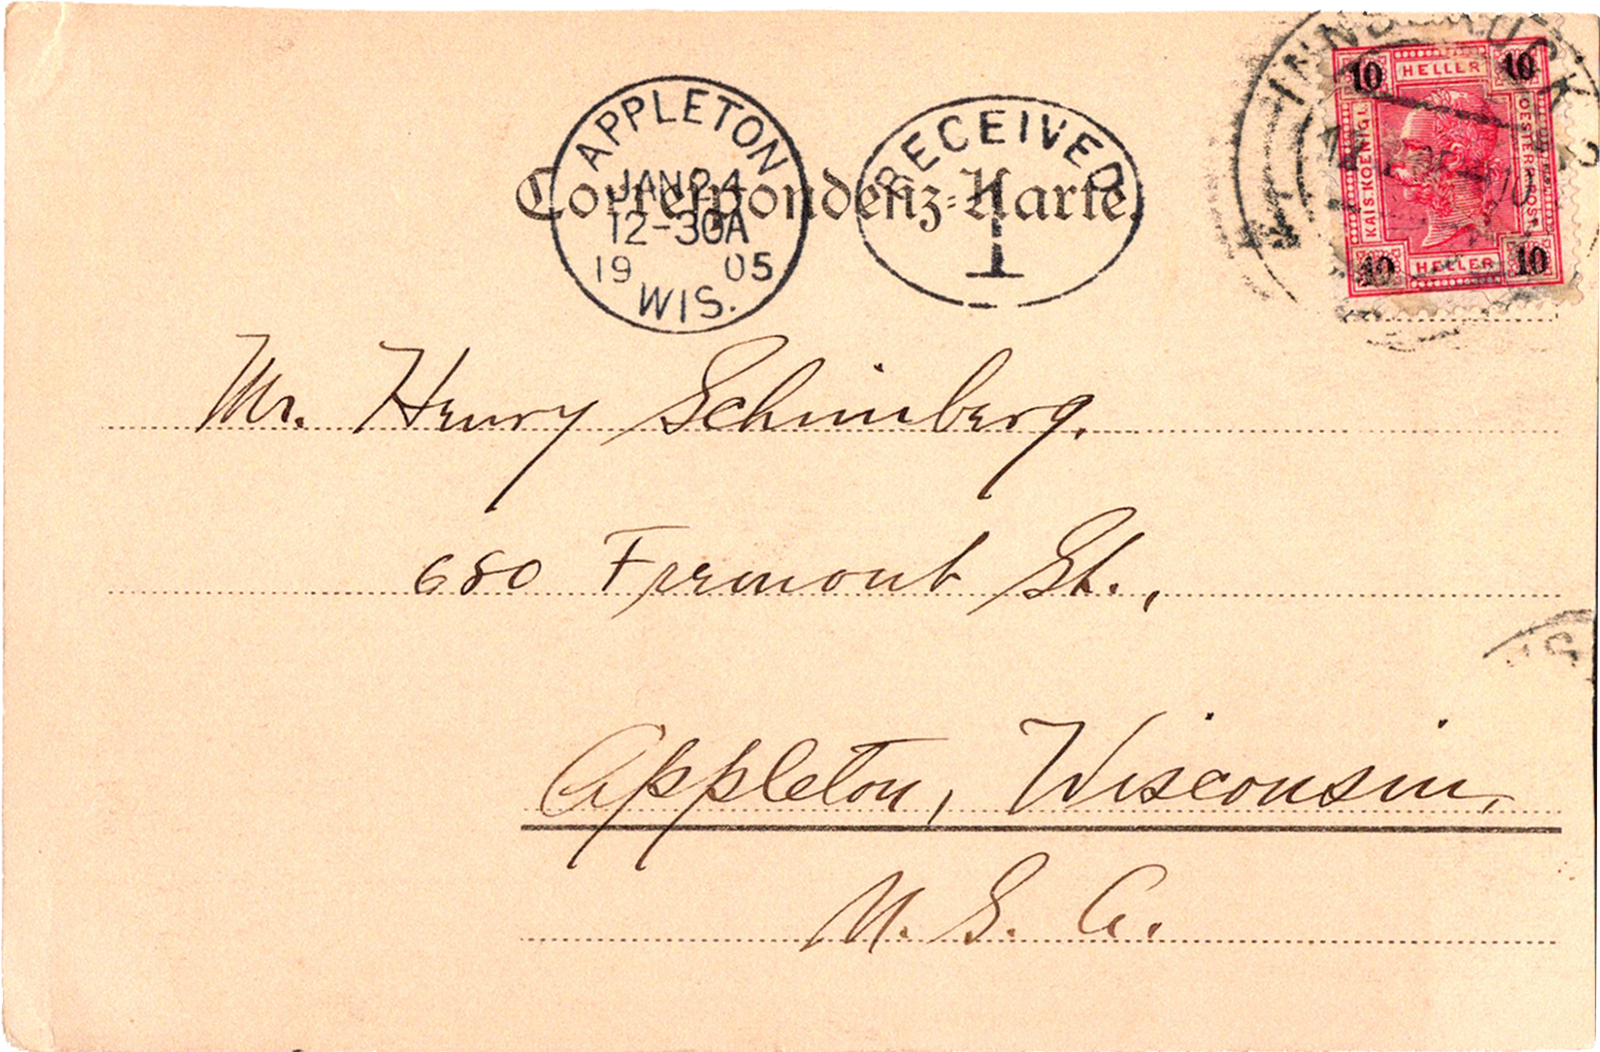 APPLETON
JAN 24
12-30A
19 05
WIS.
RECEIVED
1
INNSBRUCK
10 HELLER 10
KAIS. KOENIGL.
OESTERR. POST
10 HELLER 10
Correspondenz-Karte.
Mr. Henry Schimberg,
680 Fremont St.,
Appleton, Wisconsin,
U. S. A.